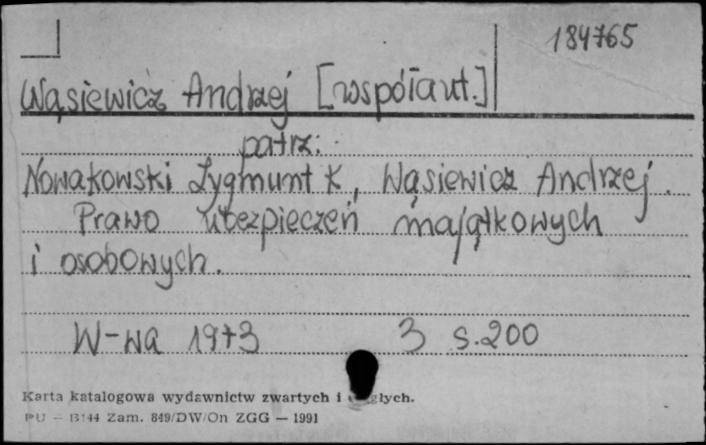 184765
Wąsiewicz Andrzej [współaut.]
patrz:
Nowakowski Zygmunt K., Wąsiewicz Andrzej.
Prawo ubezpieczeń majątkowych
i osobowych.
W-wa 1973 3 s.200
Karta katalogowa wydawnictw zwartych i ciągłych.
PU – B144 Zam. 849/DW/On ZGG — 1991